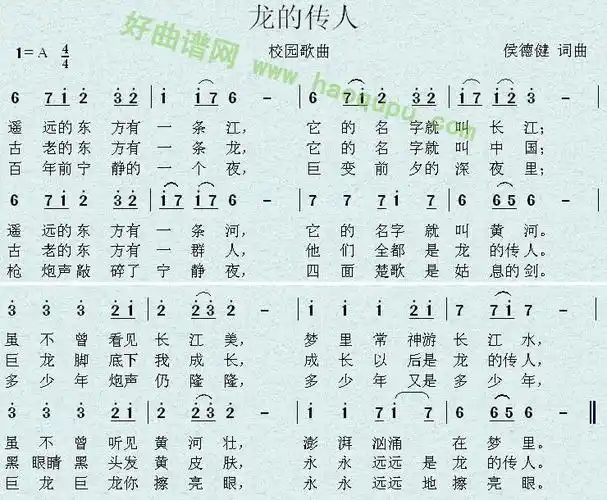 龙的传人
1=A 4/4 校园歌曲 侯德健 词曲
好曲谱网
www.haoqupu.com
6 7i 2 32 | i i7 6 - | 6 7i 2 32 | i7 i2 3 - |
遥 远的 东 方有 一 条 江， 它 的 名 字就 叫 长 江；
古 老的 东 方有 一 条 龙， 它 的 名 字就 叫 中 国；
百 年前 宁 静的 一 个 夜， 巨 变 前 夕的 深 夜 里；
6 7i 2 32 | i7 i7 6 - | 6 7i 2 i7 | 6 65 6 - |
遥 远的 东 方有 一 条 河， 它 的 名字 就 叫 黄 河。
古 老的 东 方有 一 群 人， 他 们 全都 是 龙 的传 人。
枪 炮声 敲 碎了 宁 静 夜， 四 面 楚歌 是 姑 息的 剑。
3 3 3 2i | 2 23 2 - | i i i 2i | 7 7i 7 - |
虽 不 曾 看见 长 江 美， 梦 里 常 神游 长 江 水，
巨 龙 脚 底下 我 成 长， 成 长 以 后是 龙 的传 人，
多 少 年 炮声 仍 隆 隆， 多 少 年 又是 多 少 年，
3 3 3 2i | 2 23 2 - | i i 7i 7 | 6 65 6 - ‖
虽 不 曾 听见 黄 河 壮， 澎 湃 汹涌 在 梦 里。
黑 眼睛 黑 头发 黄 皮 肤， 永 永 远远 是 龙 的传 人。
巨 龙 巨 龙你 擦 亮 眼， 永 永 远远 地 擦 亮 眼。